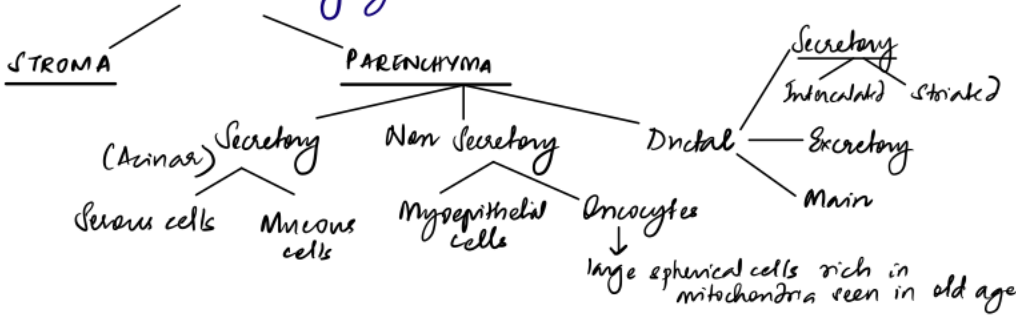 STROMA
PARENCHYMA
(Acinar) Secretory
Serous cells
Mucous
cells
Non Secretory
Myoepithelial
cells
Oncocytes
large spherical cells rich in
mitochondria seen in old age
Ductal
Secretory
Intercalated
Striated
Excretory
Main